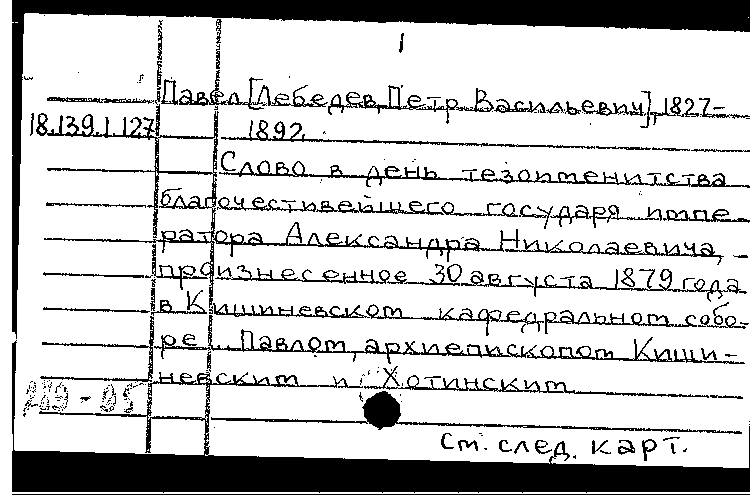 1
Павел [Лебедев, Петр Васильевич], 1827-
18.139.1.127 1892.
Слово в день тезоименитства
благочестивейшего государя импе-
ратора Александра Николаевича, -
произнесенное 30 августа 1879 года
в Кишиневском кафедральном собо-
ре .. Павлом, архиепископом Киши-
невским и Хотинским
См. след. карт.